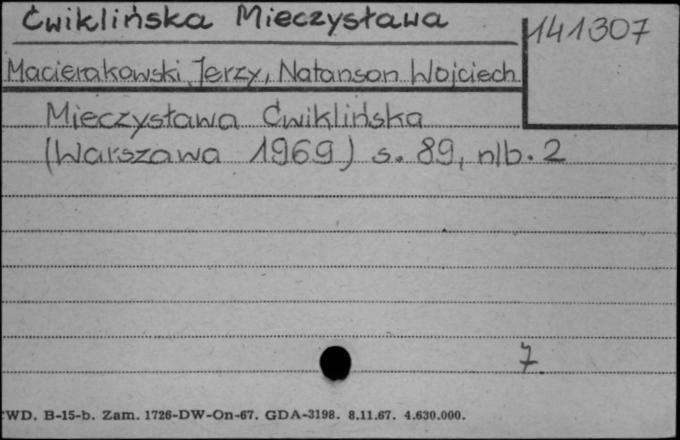 Ćwiklińska Mieczysława
141307
Macierakowski Jerzy, Natanson Wojciech
Mieczysława Ćwiklińska
(Warszawa 1969) s. 89, nlb. 2
7
CWD. B-15-b. Zam. 1726-DW-On-67. GDA-3198. 8.11.67. 4.630.000.